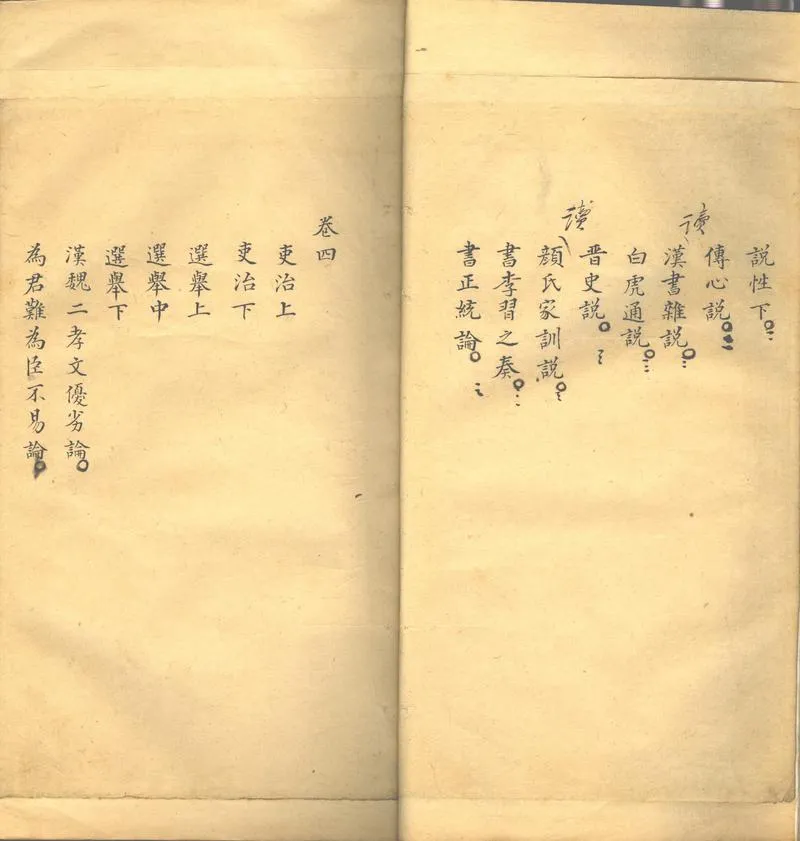 説性下
傳心説
讀漢書雜説
白虎通説
晋史説
讀顔氏家訓説
書李習之奏
書正統論
卷四
吏治上
吏治下
選舉上
選舉中
選舉下
漢魏二孝文優劣論
為君難為臣不易論